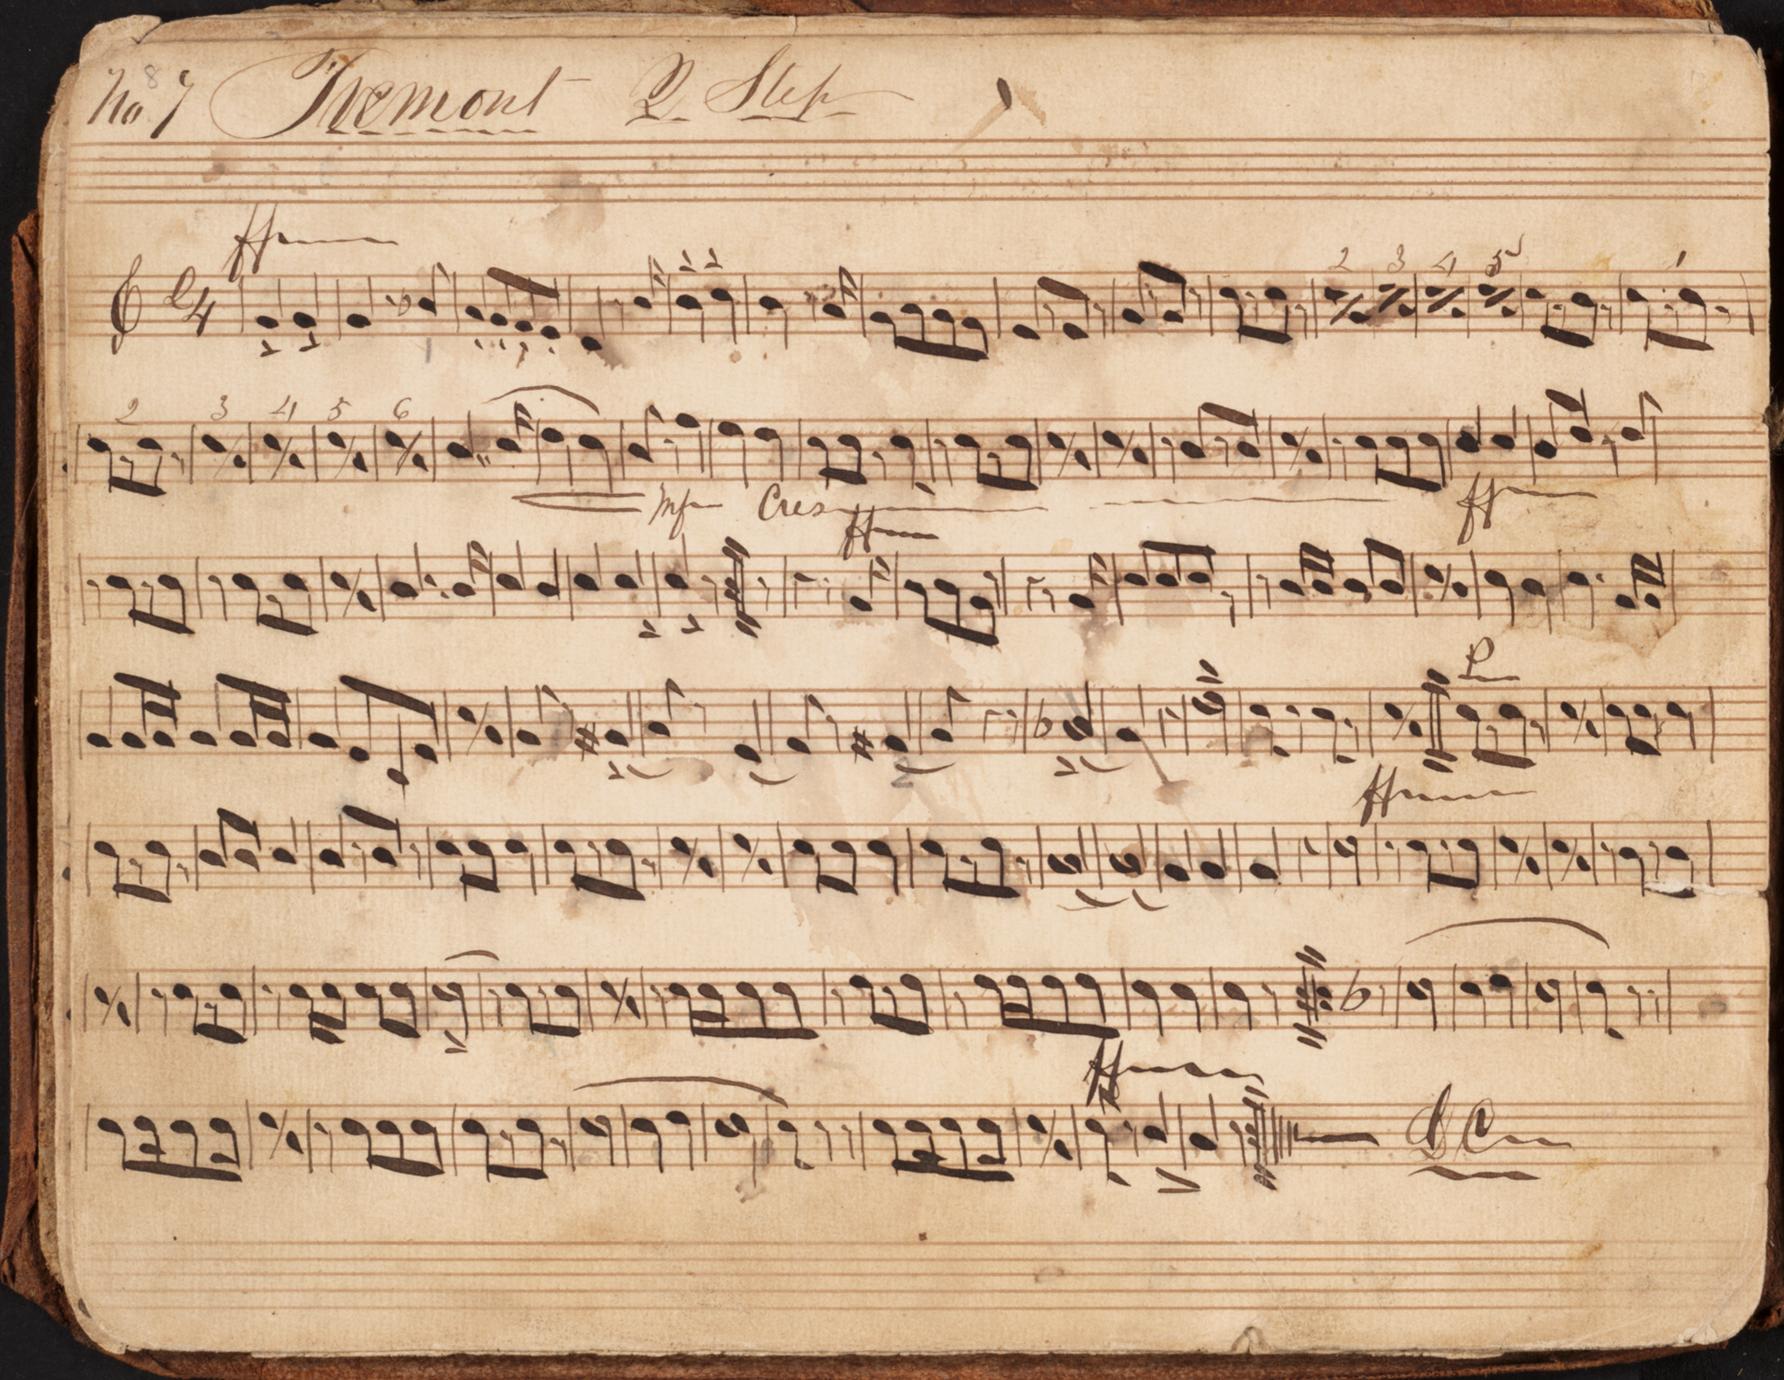 No 7 Tremont 2 Step
8
ff
2/4
2 3 4 5 1
2 3 4 5 6
mf Cres ff
ff
P
ff
ff
D C